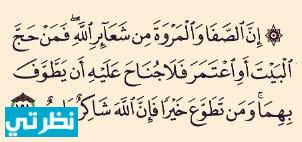 ۞ إِنَّ ٱلصَّفَا وَٱلْمَرْوَةَ مِن شَعَآئِرِ ٱللَّهِۖ فَمَنْ حَجَّ
ٱلْبَيْتَ أَوِ ٱعْتَمَرَ فَلَا جُنَاحَ عَلَيْهِ أَن يَطَّوَّفَ
بِهِمَاۚ وَمَن تَطَوَّعَ خَيْرًا فَإِنَّ ٱللَّهَ شَاكِرٌ
نظرتي